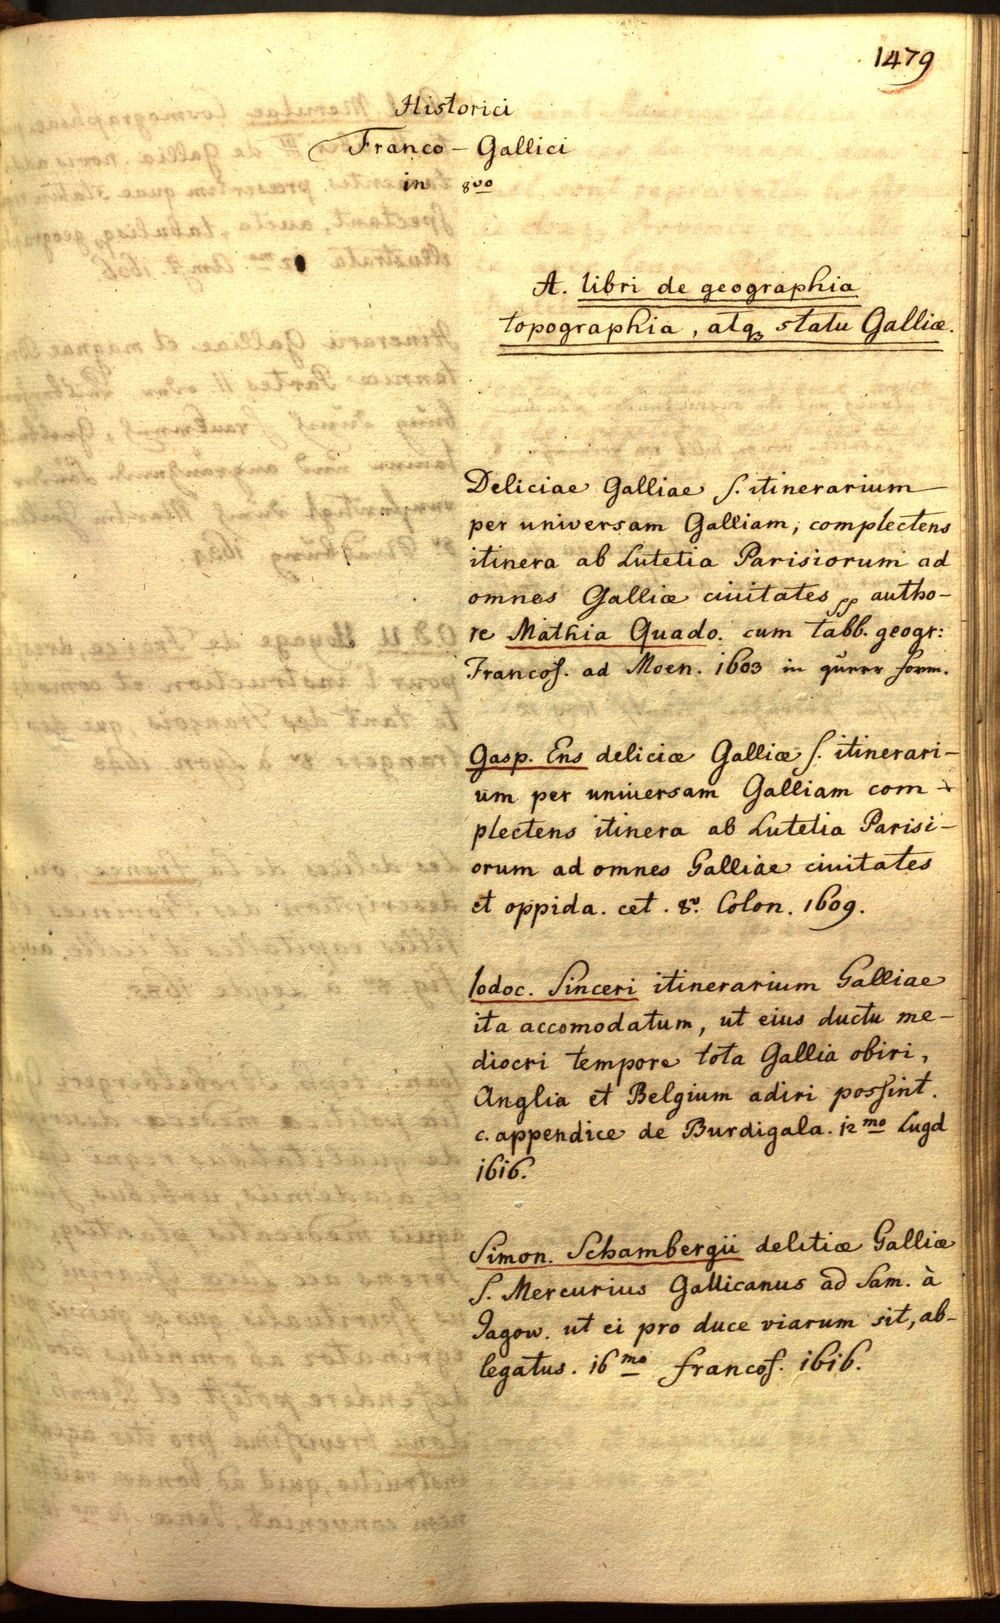 1479
Historici
Franco - Gallici
in 8vo
A. libri de geographia
topographia, atq3 statu Galliæ.
Deliciae Galliae s. itinerarium
per universam Galliam, complectens
itinera ab Lutetia Parisiorum ad
omnes Galliæ ciuitates pp autho-
re Mathia Quado. cum tabb. geogr:
Francof. ad Moen. 1603 in querr form.
Gasp. Ens deliciæ Galliæ s. itinerari-
um per uniuersam Galliam com-
plectens itinera ab Lutetia Parisi-
orum ad omnes Galliae ciuitates
et oppida. cet. 8v. Colon. 1609.
Iodoc. Sinceri itinerarium Galliae
ita accomodatum, ut eius ductu me-
diocri tempore tota Gallia obiri,
Anglia et Belgium adiri possint.
c. appendice de Burdigala. 12mo Lugd
1616.
Simon. Schambergii delitiæ Galliæ
s. Mercurius Gallicanus ad Sam. à
Jagow. ut ei pro duce viarum sit, ab-
legatus. 16mo francof. 1616.